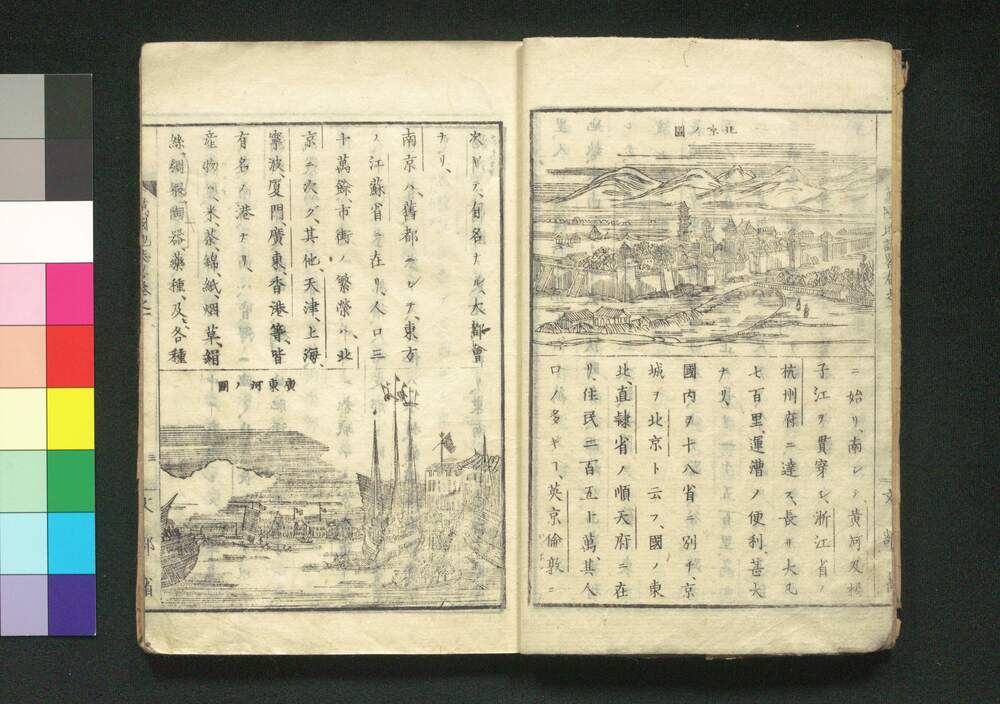 北京ノ圖
ニ始リ、南シテ、黄河及楊
子江ヲ貫穿シ、浙江省ノ
杭州府ニ達ス、長サ大凡
七百里、運漕ノ便利、甚大
ナリ、
國内ヲ十八省ニ別チ、京
城ヲ北京ト云フ、國ノ東
北、直隷省ノ順天府ニ在
リ、住民二百五十萬、其人
口ノ多キ﹅、英京倫敦ニ
次ギテ、有名ナル大都會
ナリ、
南京ハ、舊都ニシテ、東方
ノ江蘇省ニ在リ、人口三
十萬餘、市街ノ繁榮ハ、北
京ニ次グ、其他、天津、上海、
寧波、厦門、廣東、香港等、皆
有名ノ港ナリ、
産物ハ、米、茶、綿、紙、烟草、絹
絲、綢緞、陶器、藥種、及、各種
廣東河ノ圖
三
文部省